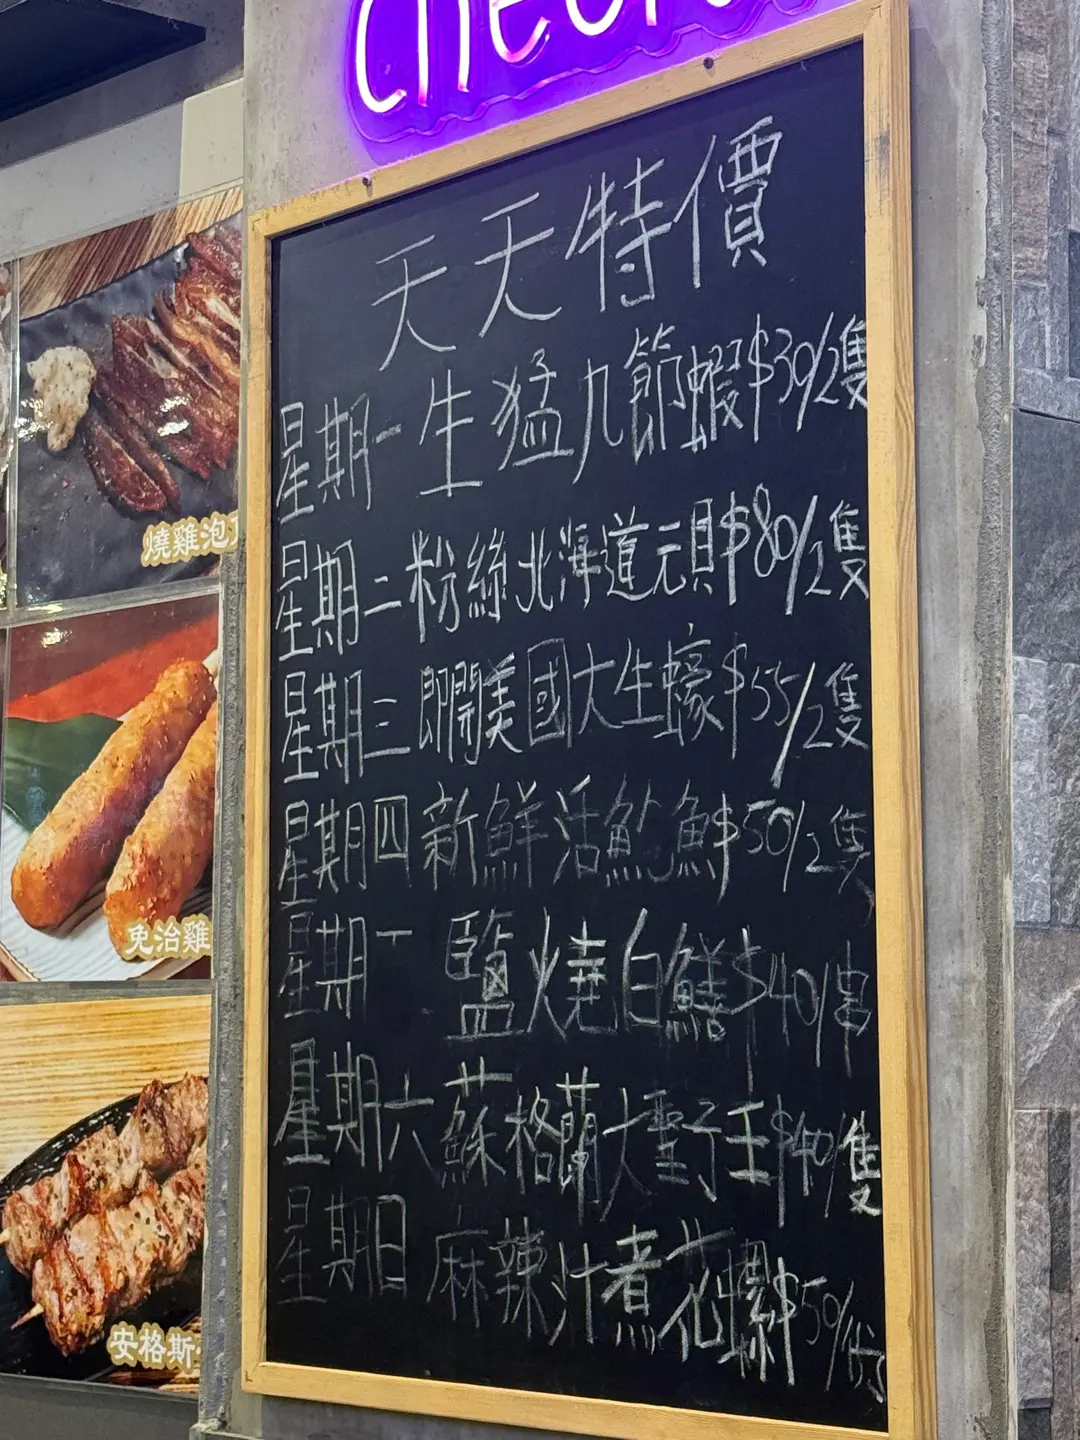 Cheers
天天特價
星期一生猛九節蝦$39/2隻
星期二粉絲北海道元貝$80/2隻
星期三即開美國大生蠔$55/2隻
星期四新鮮活魷魚$50/2隻
星期 鹽燒白鱔$40/串
星期六蘇格蘭大聖子王$40/隻
星期日麻辣汁煮花螺$50/份
燒雞泡
免治雞
安格斯